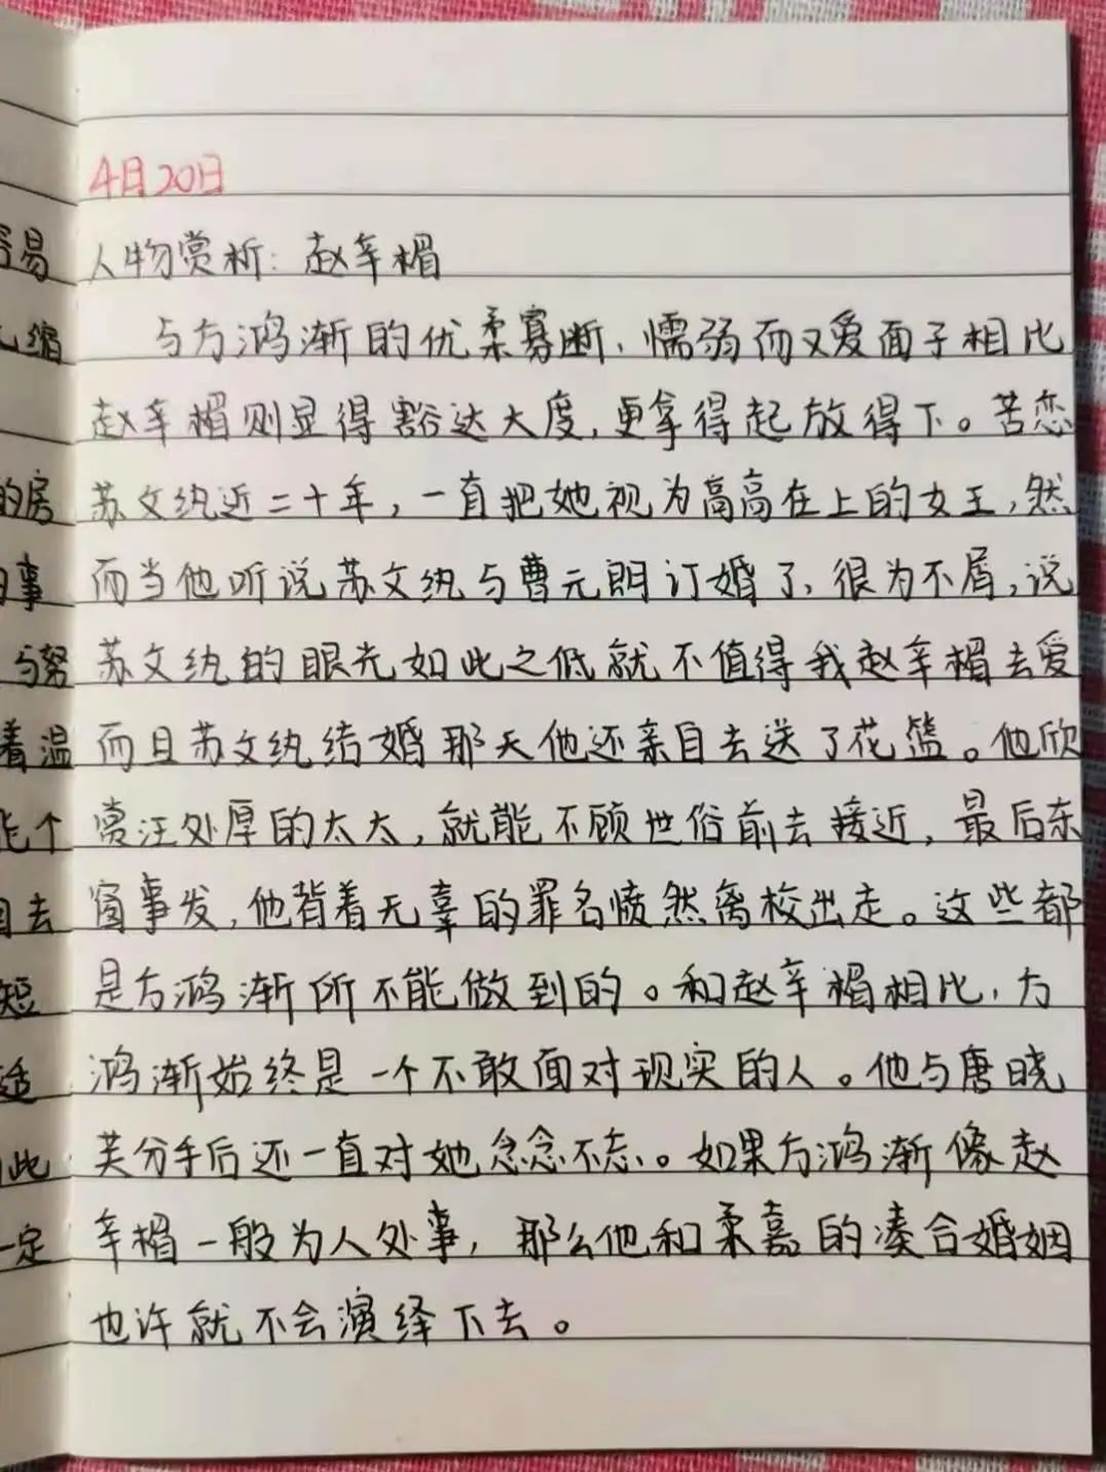 4月20日
人物赏析：赵辛楣
与方鸿渐的优柔寡断、懦弱而又爱面子相比
赵辛楣则显得豁达大度，更拿得起放得下。苦恋
苏文纨近二十年，一直把她视为高高在上的女王，然
而当他听说苏文纨与曹元朗订婚了，很为不屑，说
苏文纨的眼光如此之低就不值得我赵辛楣去爱
而且苏文纨结婚那天他还亲自去送了花篮。他欣
赏汪处厚的太太，就能不顾世俗前去接近，最后东
窗事发，他背着无辜的罪名愤然离校出走。这些都
是方鸿渐所不能做到的。和赵辛楣相比，方
鸿渐始终是一个不敢面对现实的人。他与唐晓
芙分手后还一直对她念念不忘。如果方鸿渐像赵
辛楣一般为人处事，那么他和柔嘉的凑合婚姻
也许就不会演绎下去。
易
缩
的房
事
与努
着温
个
去
短
适
此
一定